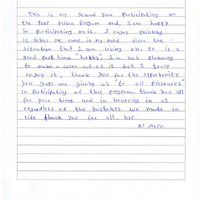 This is my second year participating on
the Peer Prison Program and, I am happy
to participating on it. I enjoy thinking
it takes me away in my mind from the
situation that I am living on. So is a
good past time "hobby" I'm but planning
to make a career out of it but I truly
enjoy it, thank you for the opportunity
you guys are giving us "to all prisoners"
to participating at this program. thank you all
for your time and in believing in us
regardless of the mistakes we made in
life thank you for all, bye.